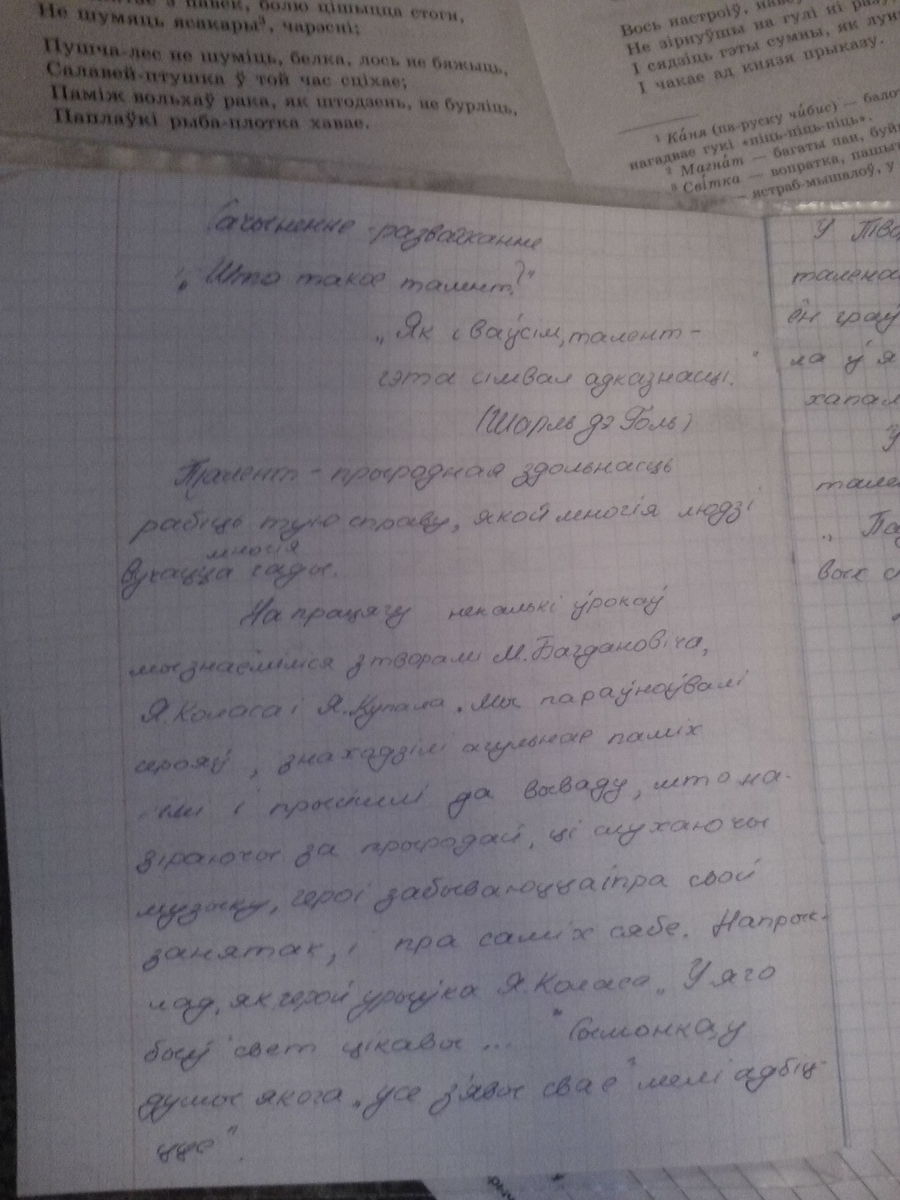 з павек, болю цішыцца стогн,
Не шумяць ясакары³, чарэсні;
Пушча-лес не шуміць, белка, лось не бяжыць,
Салавей-птушка ў той час сціхае;
Паміж вольхаў рака, як штодзень, не бурліць,
Паплаўкі рыба-плотка хавае.
Вось настроіў,
Не зірнуўшы на гулі ні разу,
І сядзіць гэты сумны, як лунь
І чакае ад князя прыказу.
¹ Ка́ня (па-руску чи́бис) — балот
нагадвае гукі «піць-піць-піць».
² Магна́т — багаты пан, буйн
³ Сві́тка — вопратка, пашыт
— ястраб-мышалоў, у
Сачыненне-разважанне
„Што такое талент?"
„Як і ваўсім, талент -
гэта сімвал адказнасці."
(Шарль дэ Голь)
Талент - прыродная здольнасць
рабіць тую справу, якой многія людзі
многія
вучацца гады.
На працягу некалькі ўрокаў
мы знаёмімся з творамі М.Багдановіча,
Я.Коласа і Я.Купала. Мы параўноўвалі
герояў, знаходзілі агульнае паміж
імі і прыйшлі да вываду, што на-
зіраючы за прыродай, ці слухаючы
музыку, героі забываюцца і пра свой
занятак, і пра саміх сябе. Напрык-
лад, як герой урыўка Я.Коласа „У яго
быў свет цікавы..." Сымонка, у
душы якога „усе з'явы свае" мелі адбіц-
цё".
У тво
тален
ён граў
ла ў я
хапал
У
тале
„Па
вых с